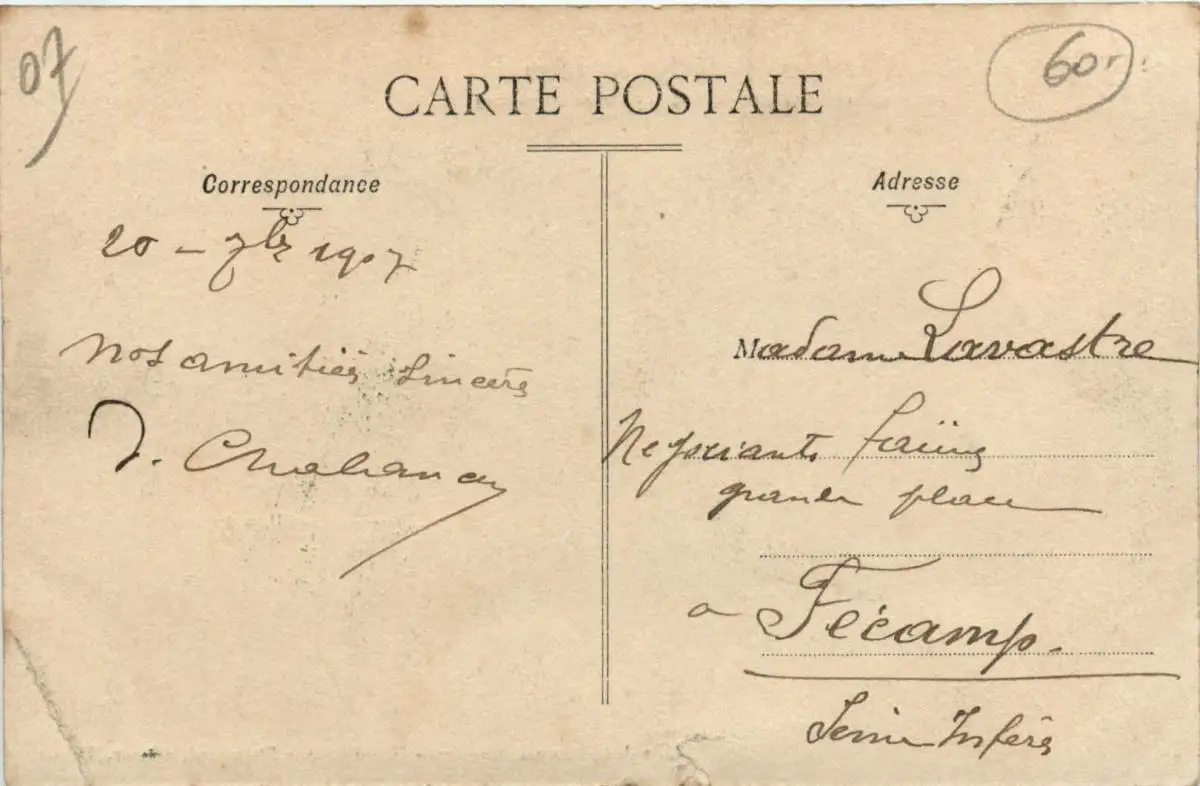 07
60
CARTE POSTALE
Correspondance
20 - 7bre 1907
Nos amitiés sincères
Adresse
Madame Lavastre
Negociante
grande place
a Fécamp.
Seine Infére